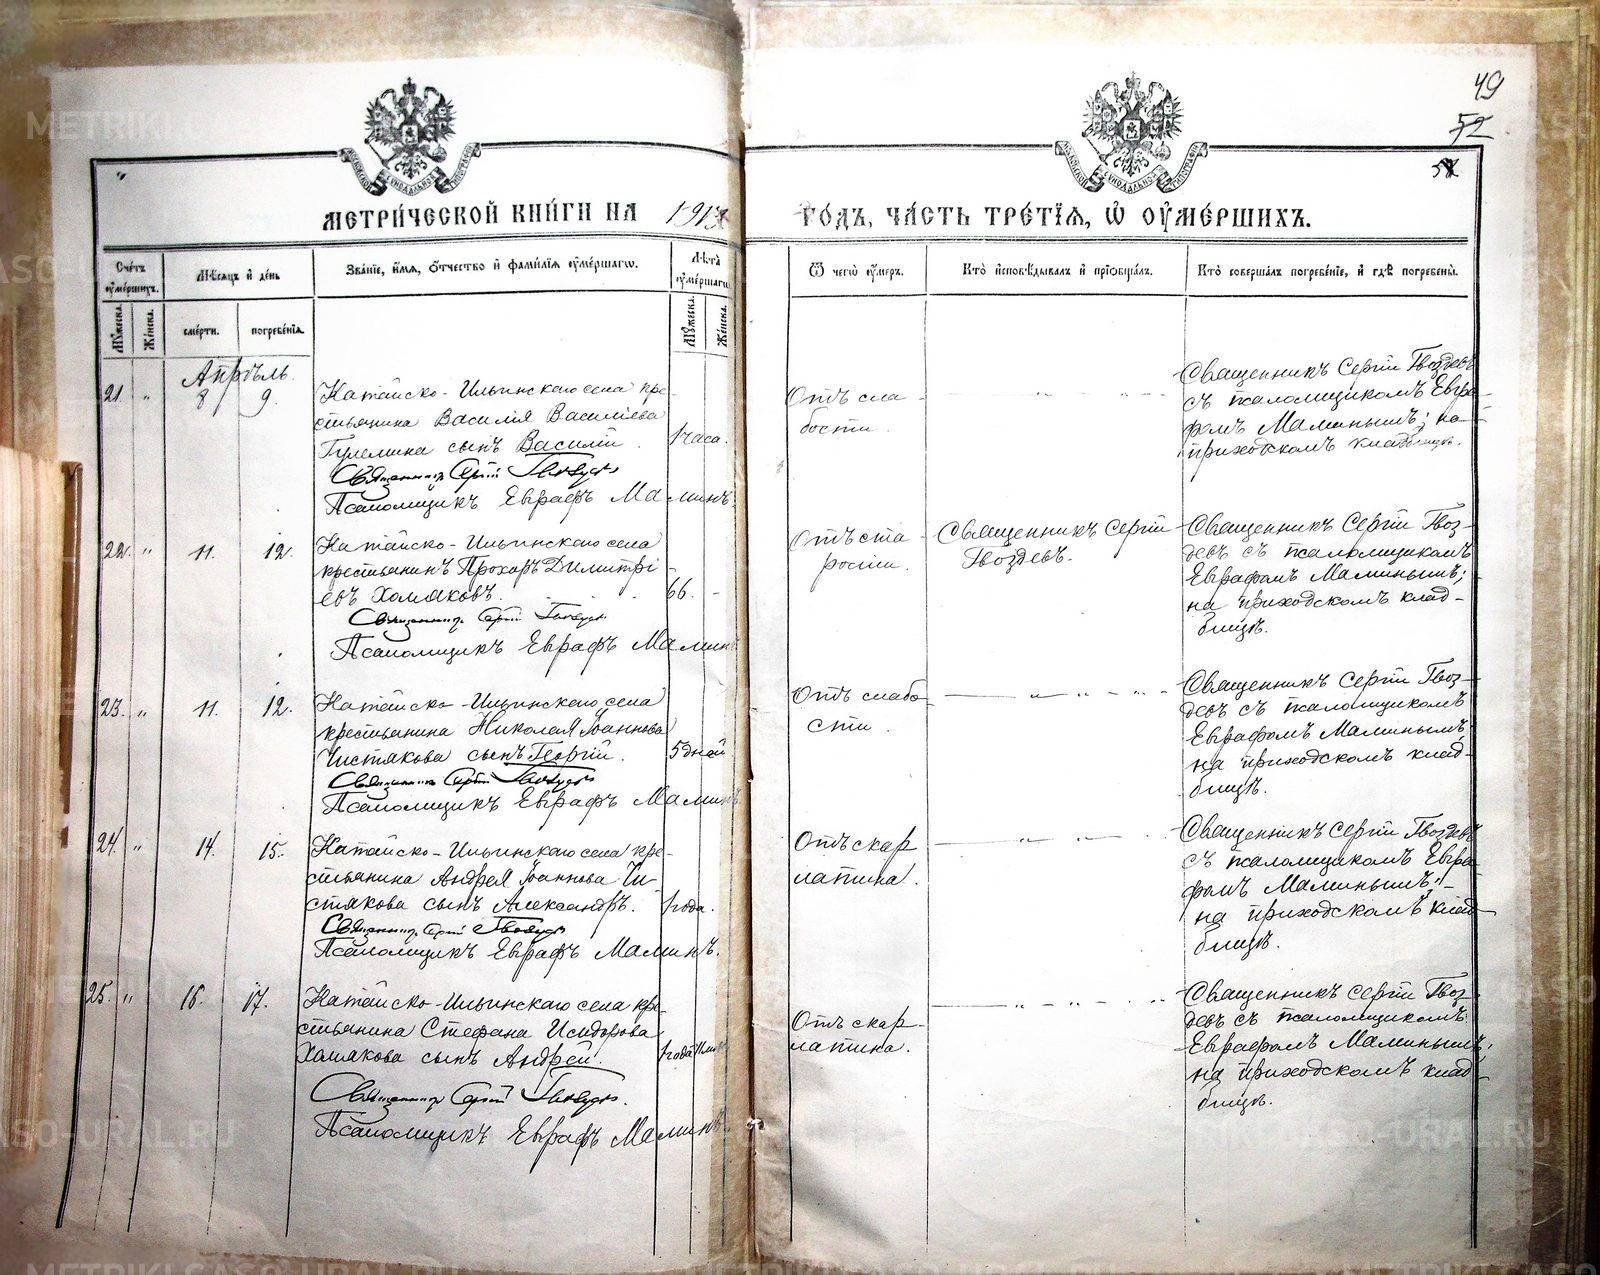 49
52
МЕТРИ́ЧЕСКОЙ КНИ́ГИ НА 1913
ГО́ДЪ, ЧА́СТЬ ТРЕ́ТІѦ, Ѡ ОУ҆МЕ́РШИХЪ.
Сче́тъ оу҆ме́ршихъ.
Мѣ́сѧцъ и҆ де́нь
Зва́ніе, и҆́мѧ, ѻ҆́тчество и҆ фами́лїѧ оу҆ме́ршагѡ.
Лѣ́та оу҆ме́ршагѡ
Мꙋ́жеска.
Же́нска.
сме́рти.
погребе́нїѧ.
Мꙋ́жеска.
Же́нска.
Ѿ чегѡ̀ оу҆́меръ.
Кто̀ и҆сповѣ́дывалъ и҆ прїѻбща́лъ.
Кто̀ соверша́лъ погребе́нїе, и҆ гдѣ̀ погребены̀.
Апрѣль
21. " 8 9.
Катайско-Ильинскаго села кре-
стьянина Василія Василіева
Гулемина сынъ Василій.
1 часа.
Священник Сергій Гвоздевъ
Псаломщикъ Евграфъ Маминъ.
Отъ сла-
бости.
Священникъ Сергій Гвоздевъ
съ псаломщикомъ Евгра-
фомъ Маминымъ; на
приходскомъ кладбищѣ.
22. " 11. 12.
Катайско-Ильинскаго села
крестьянинъ Прохоръ Димитрі-
евъ Хомяковъ.
66.
Священник Сергій Гвоздевъ
Псаломщикъ Евграфъ Маминъ
Отъ ста-
рости.
Священникъ Сергій
Гвоздевъ.
Священникъ Сергій Гвоз-
девъ съ псаломщикомъ
Евграфомъ Маминымъ;
на приходскомъ клад-
бищѣ.
23. " 11. 12.
Катайско-Ильинскаго села
крестьянина Николая Іоаннова
Чистякова сынъ Георгій.
5 дней
Священник Сергій Гвоздевъ
Псаломщикъ Евграфъ Маминъ.
Отъ слабо-
сти.
Священникъ Сергій Гвоз-
девъ съ псаломщикомъ
Евграфомъ Маминымъ;
на приходскомъ клад-
бищѣ.
24. " 14. 15.
Катайско-Ильинскаго села кре-
стьянина Андрея Іоаннова Чи-
стякова сынъ Александръ.
1 года.
Священник Сергій Гвоздевъ
Псаломщикъ Евграфъ Маминъ.
Отъ скар
латина.
Священникъ Сергій Гвоздевъ
съ псаломщикомъ Евгра-
фомъ Маминымъ;
на приходскомъ клад-
бищѣ.
25. " 16. 17.
Катайско-Ильинскаго села кре-
стьянина Стефана Исидорова
Хомякова сынъ Андрей.
1 года
Священник Сергій Гвоздевъ.
Псаломщикъ Евграфъ Маминъ.
Отъ скар-
латина.
Священникъ Сергій Гвоз-
девъ съ псаломщикомъ
Евграфомъ Маминымъ;
на приходскомъ клад-
бищѣ.